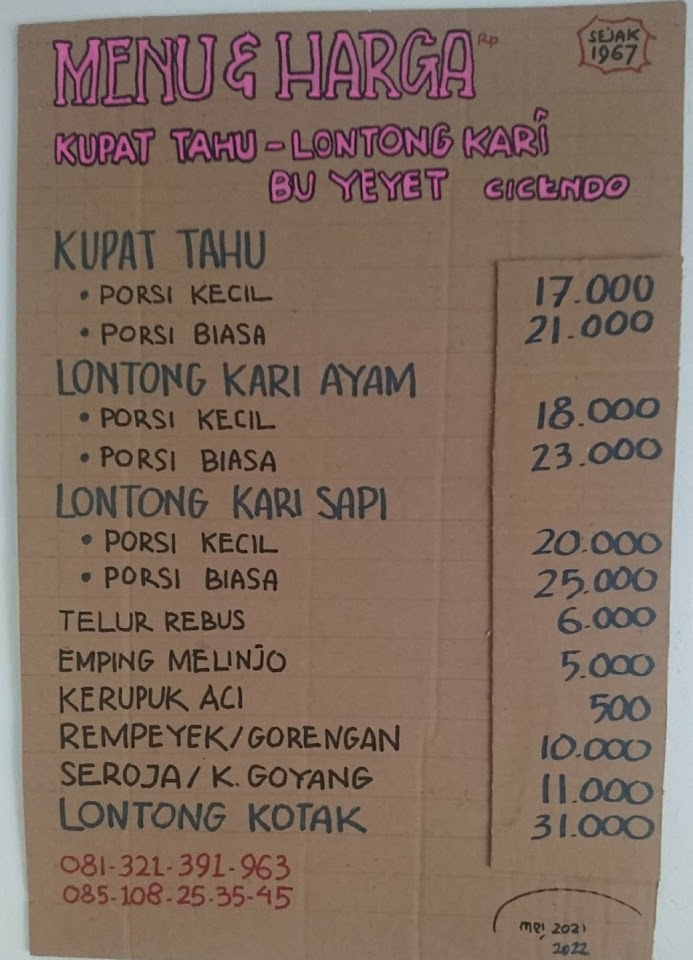 MENU & HARGA Rp
SEJAK
1967
KUPAT TAHU - LONTONG KARI
BU YEYET CICENDO
KUPAT TAHU
• PORSI KECIL 17.000
• PORSI BIASA 21.000
LONTONG KARI AYAM
• PORSI KECIL 18.000
• PORSI BIASA 23.000
LONTONG KARI SAPI
• PORSI KECIL 20.000
• PORSI BIASA 25.000
TELUR REBUS 6.000
EMPING MELINJO 5.000
KERUPUK ACI 500
REMPEYEK/GORENGAN 10.000
SEROJA/K. GOYANG 11.000
LONTONG KOTAK 31.000
081-321-391-963
085-108-25-35-45
mei 2021
2022